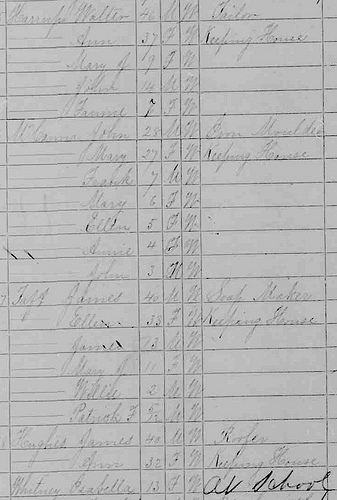 Walter 46 M W Tailor
Ann 37 F W Keeping House
Mary J 19 F W
John 14 M W
Fannie 7 F W
John 28 M W Iron Moulder
Mary 27 F W Keeping House
Frank 7 M W
Mary 6 F W
Ellen 5 F W
Annie 4 F W
John 3 M W
James 40 M W Soap Maker
Ellen 33 F W Keeping House
James 13 M W
Mary J 11 F W
Willie 2 M W
Patrick F M W
Hughes James 40 M W Roofer
Ann 32 F W Keeping House
Whitney Isabella 13 F W At School